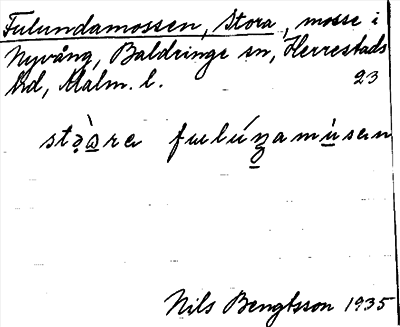 Fulundamossen, Stora, mosse i
Nyvång, Baldringe sn, Herrestads
hd, Malm. l. 23
stạ̀are fulúnamusen
Nils Bengtsson 1935